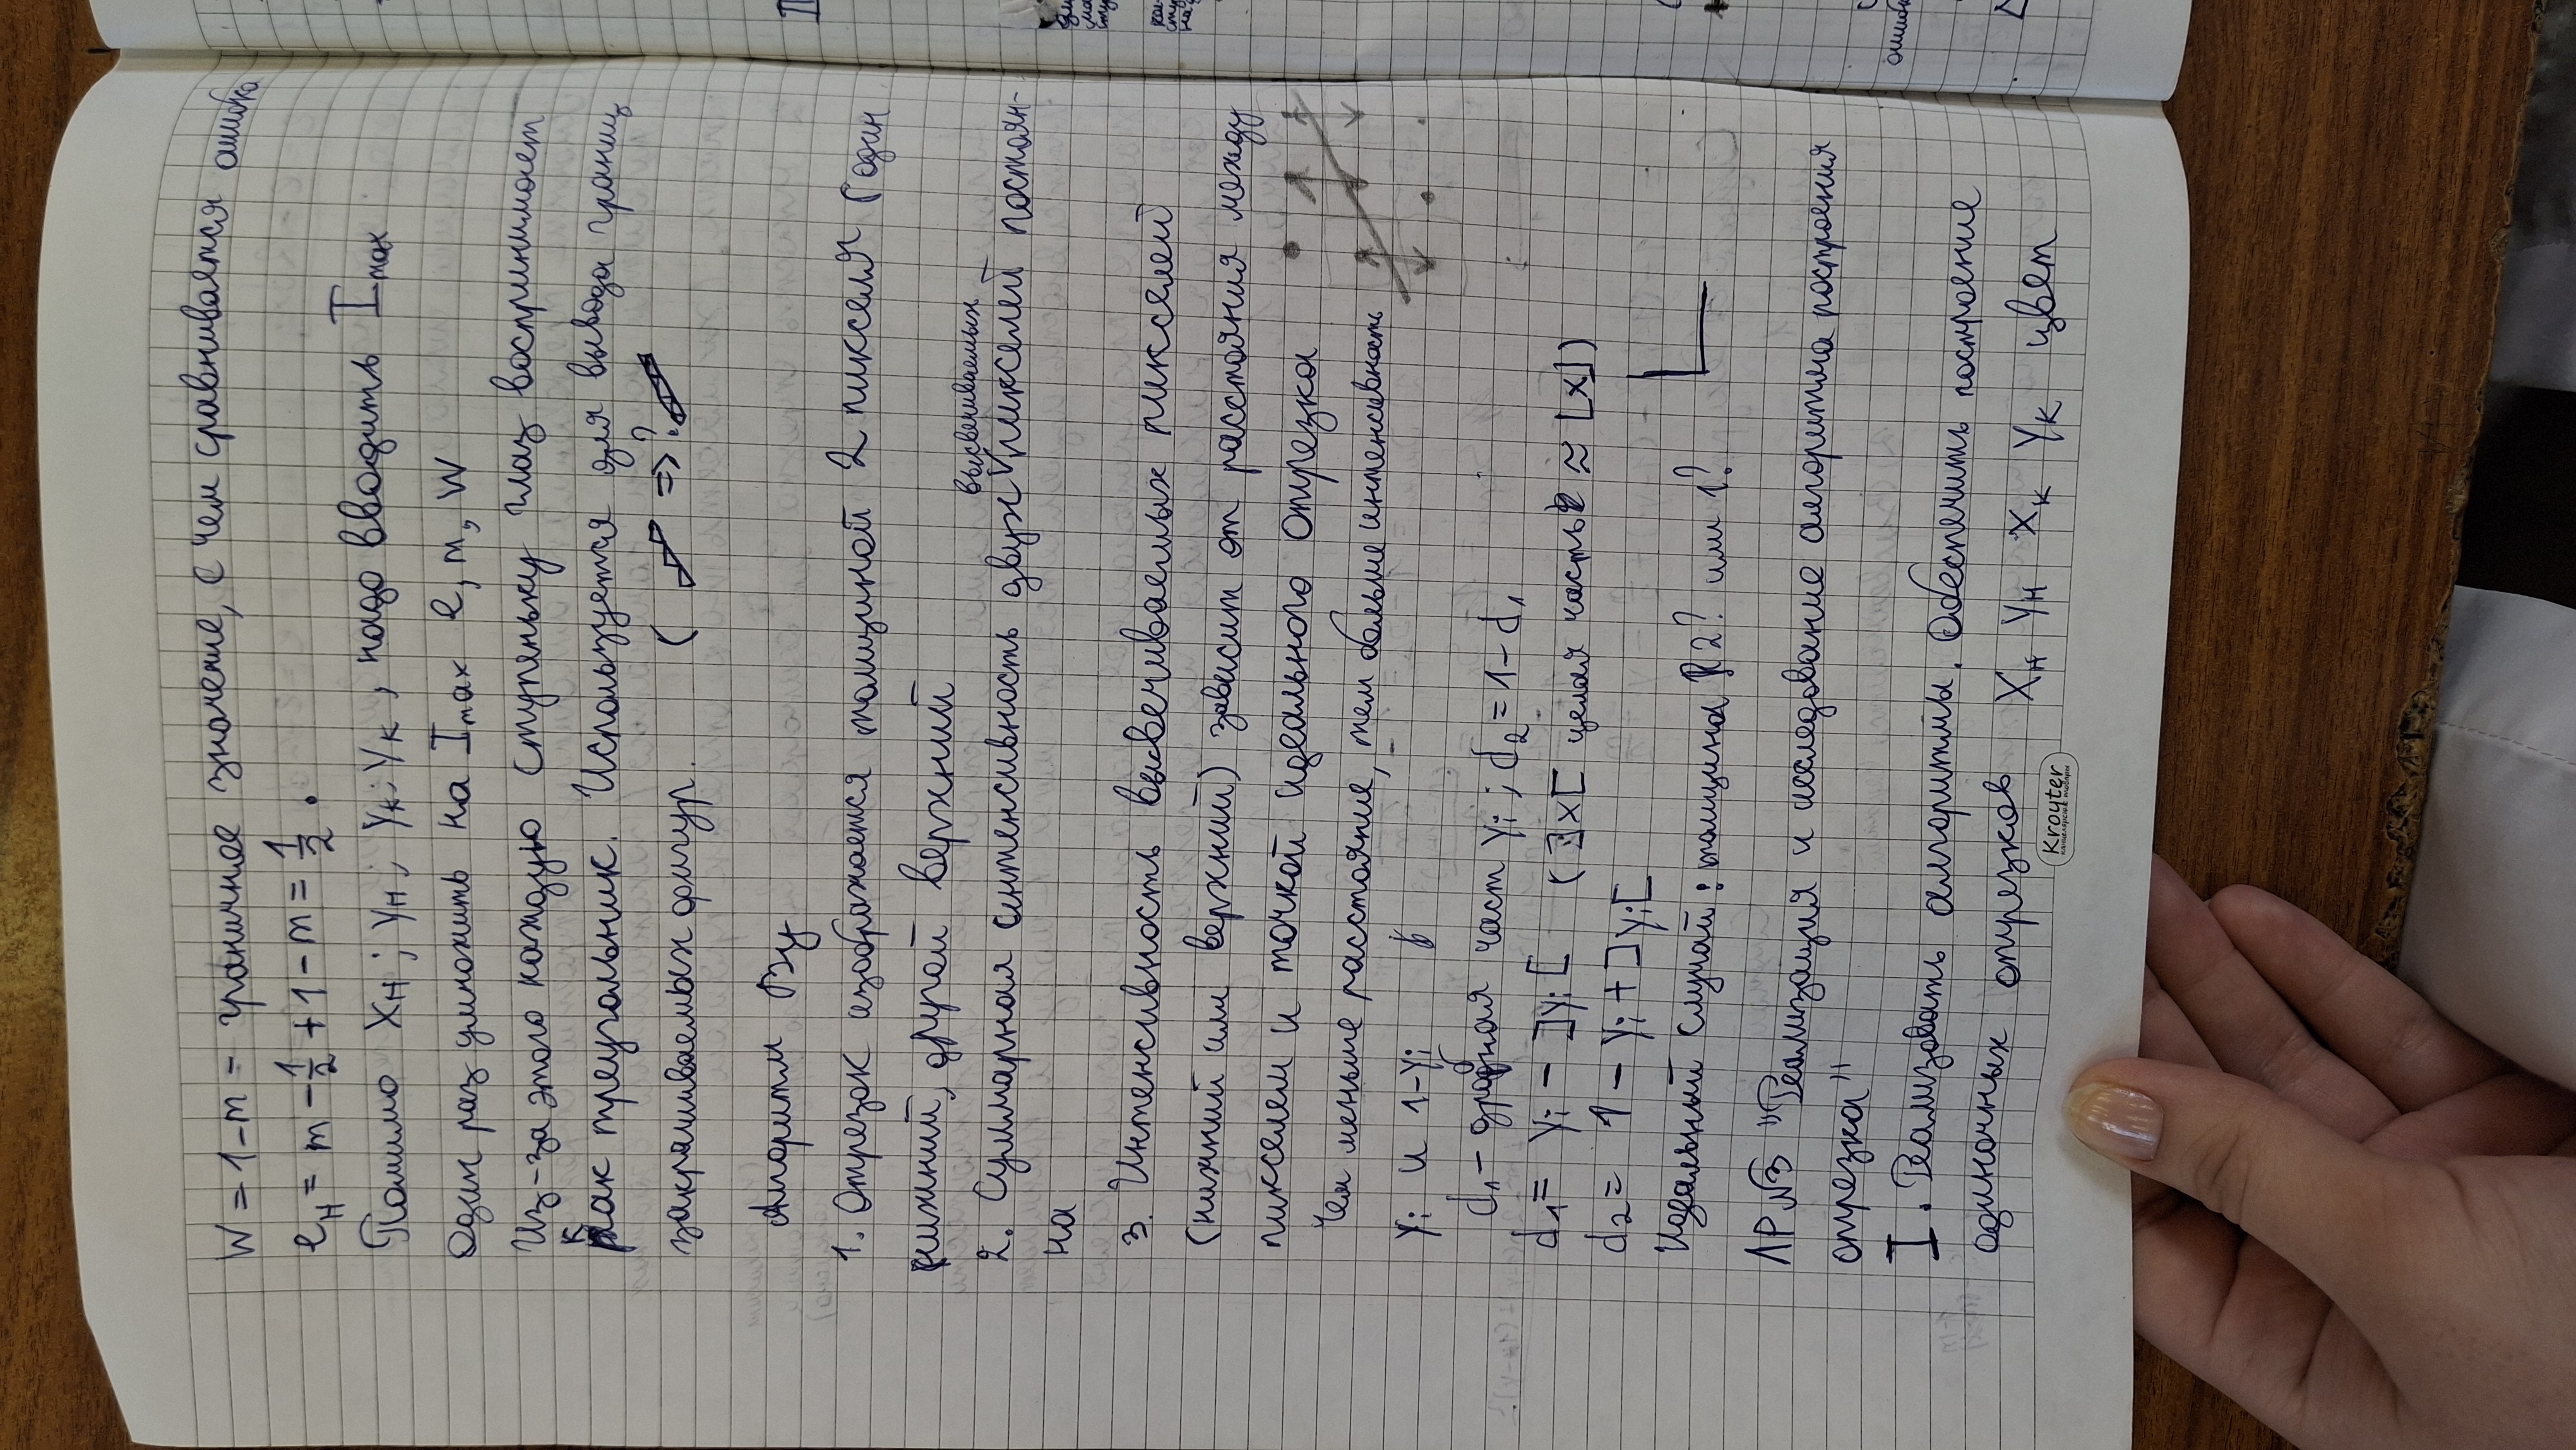 W = 1-m - граничное значение, с чем сравнивается ошибка
eн = m - 1/2 + 1 - m = 1/2.
Помимо Xн; Yн; Yк; Yк, надо вводить Imax
Один раз умножить на Imax e, m, W
Из-за этого каждую ступеньку глаз воспринимает
как треугольник. Используется для вывода границ
закрашиваемых фигур. ( => ?
Алгоритм Ву
1. Отрезок изображается толщиной 2 пикселя (один
нижний, другой верхний
высвечиваемых
2. Суммарная интенсивность двух V пикселей постоян-
на
3. Интенсивность высвечиваемых пикселей
(нижний или верхний) зависит от расстояния между
пикселем и точкой идеального отрезка
Чем меньше расстояние, тем больше интенсивность
Yi и 1-Yi
d1 - дробная част Yi ; d2 = 1 - d1
d1 = Yi - ]yi[ ( ]x[ целая часть ≈ [x])
d2 = 1 - Yi + ]yi[
Идеальный случай: толщина 2? или 1?
ЛР №3 "Реализация и исследование алгоритма построения
отрезка"
I. Реализовать алгоритмы. Обеспечить построение
одиночных отрезков Xн Yн Xк Yк цвет
Kroyter
канцелярские товары
ошибк